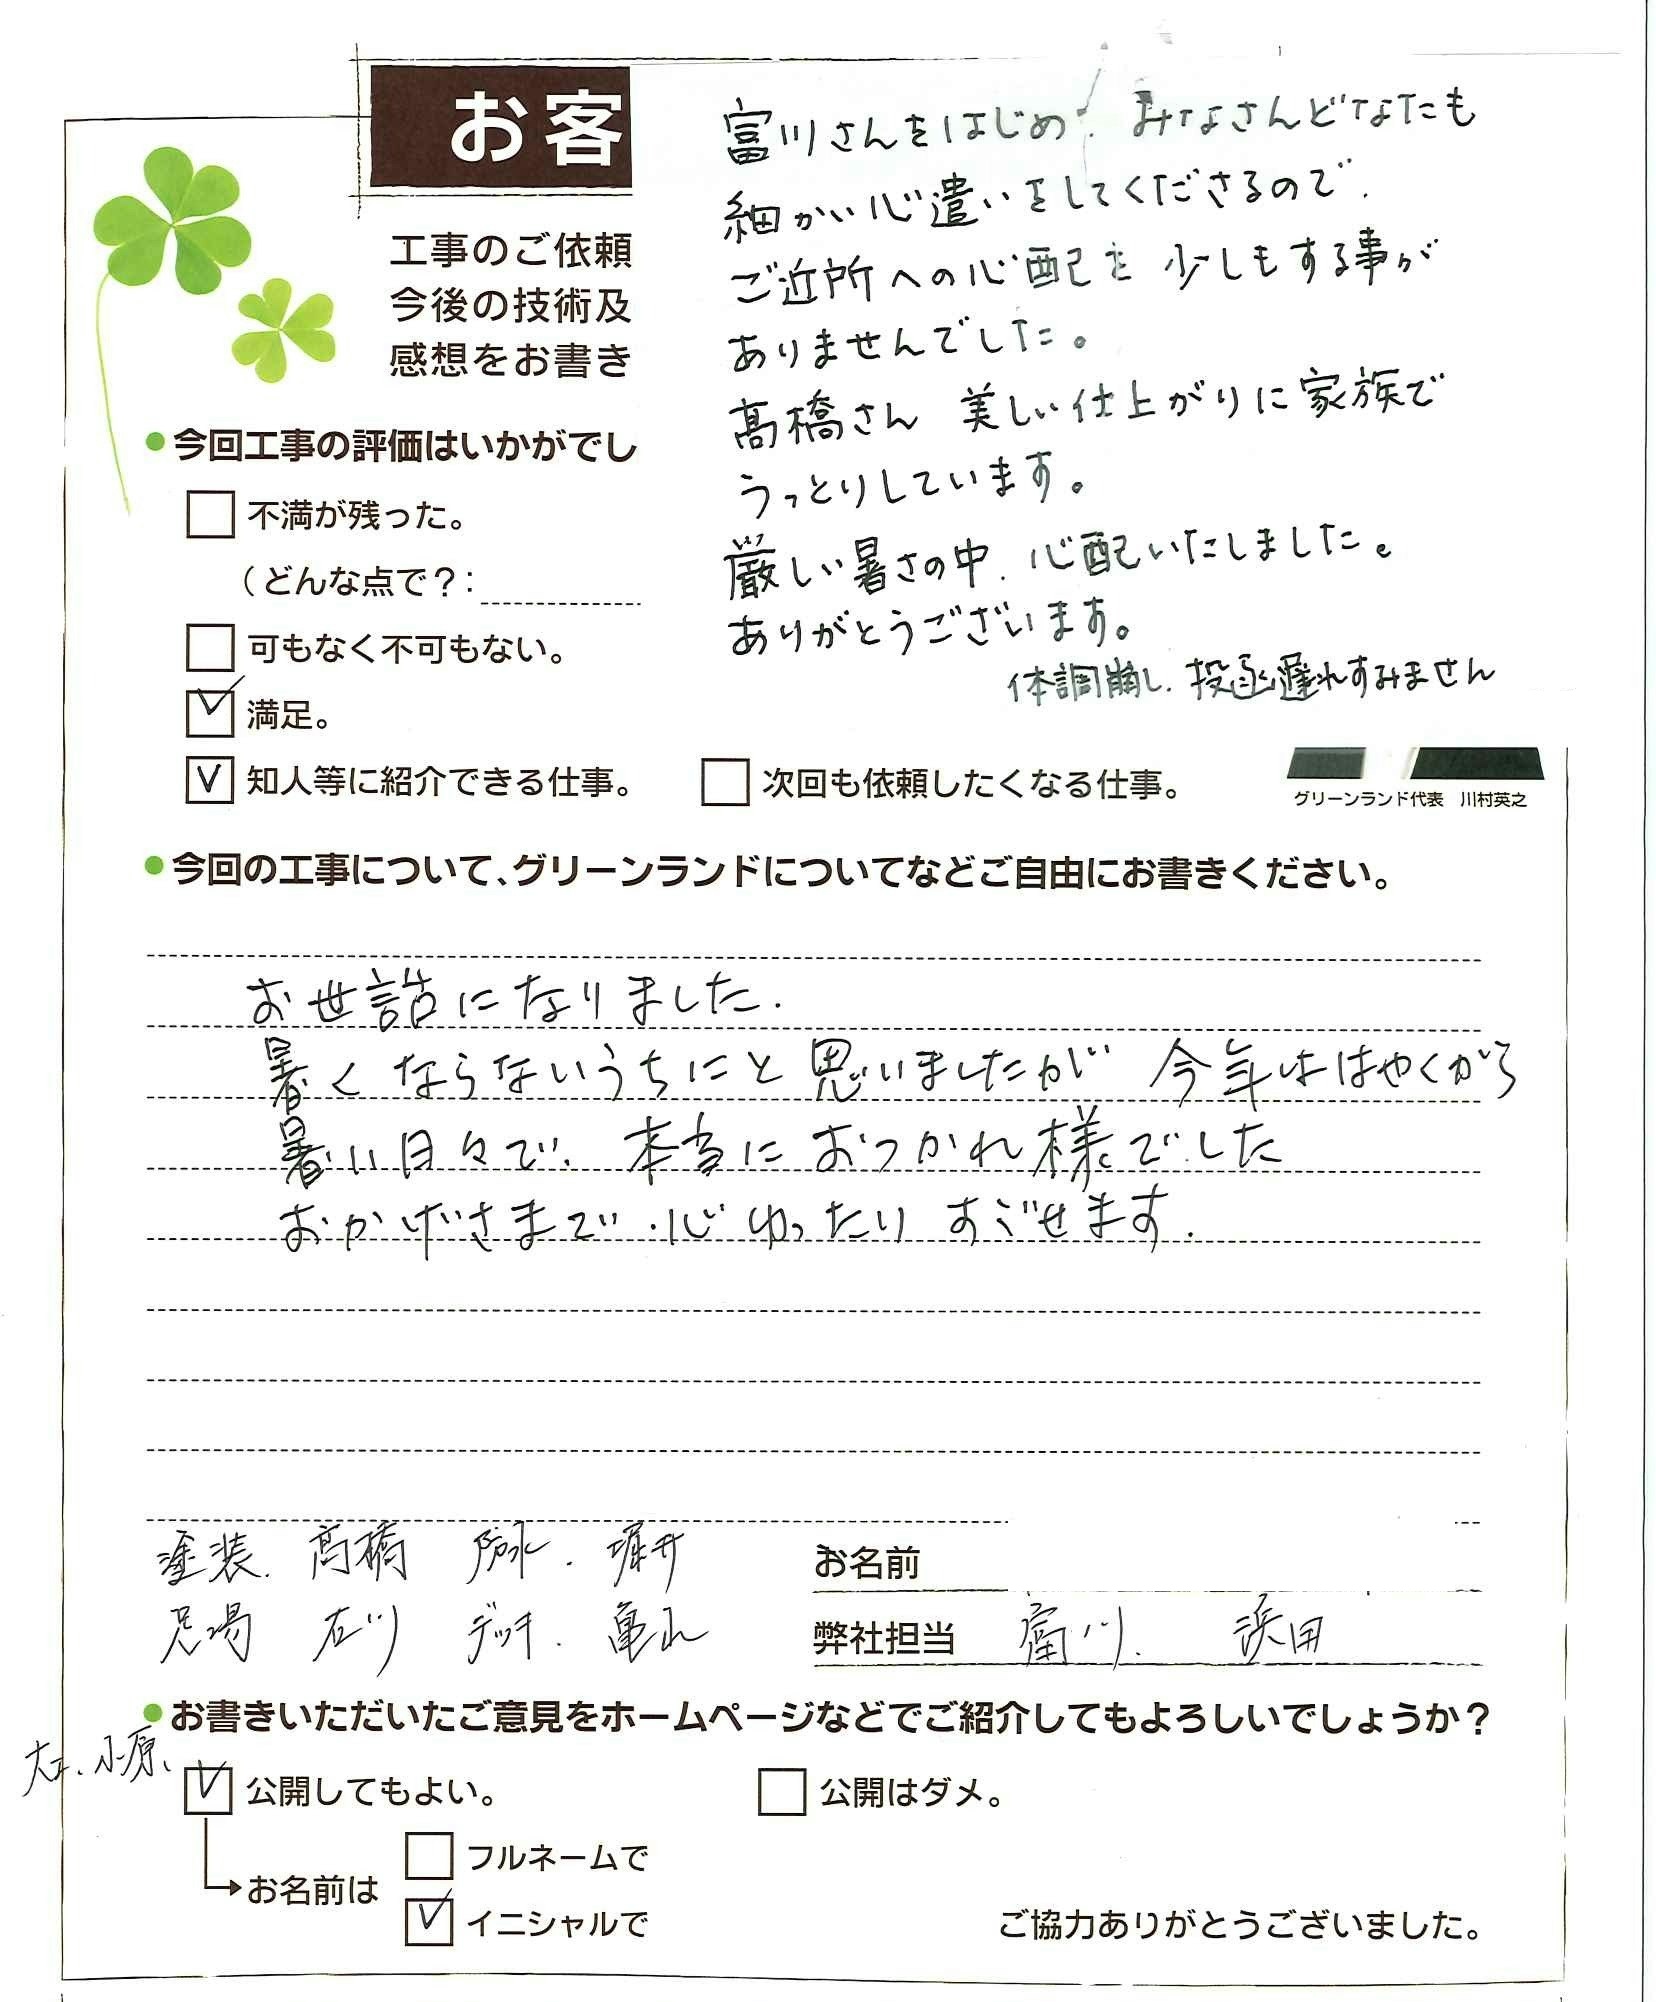 お客
工事のご依頼
今後の技術及
感想をお書き
富川さんをはじめ、みなさんどなたも
細かい心遣いをしてくださるので、
ご近所への心配を少しもする事が
ありませんでした。
髙橋さん 美しい仕上がりに家族で
うっとりしています。
厳しい暑さの中、心配いたしました。
ありがとうございます。
体調崩し、投函遅れすみません
今回工事の評価はいかがでし
不満が残った。
(どんな点で?:
可もなく不可もない。
満足。
知人等に紹介できる仕事。 次回も依頼したくなる仕事。
グリーンランド代表 川村英之
今回の工事について、グリーンランドについてなどご自由にお書きください。
お世話になりました.
暑くならないうちにと思いましたが 今年ははやくから
暑い日々で、本当におつかれ様でした
おかげさまで、心ゆったりすごせます.
塗装. 髙橋 防水. 堀井
足場 石川 デッキ.
お名前
弊社担当 富川. 浜田
お書きいただいたご意見をホームページなどでご紹介してもよろしいでしょうか?
大工、小原、
公開してもよい。 公開はダメ。
お名前は
フルネームで
イニシャルで
ご協力ありがとうございました。